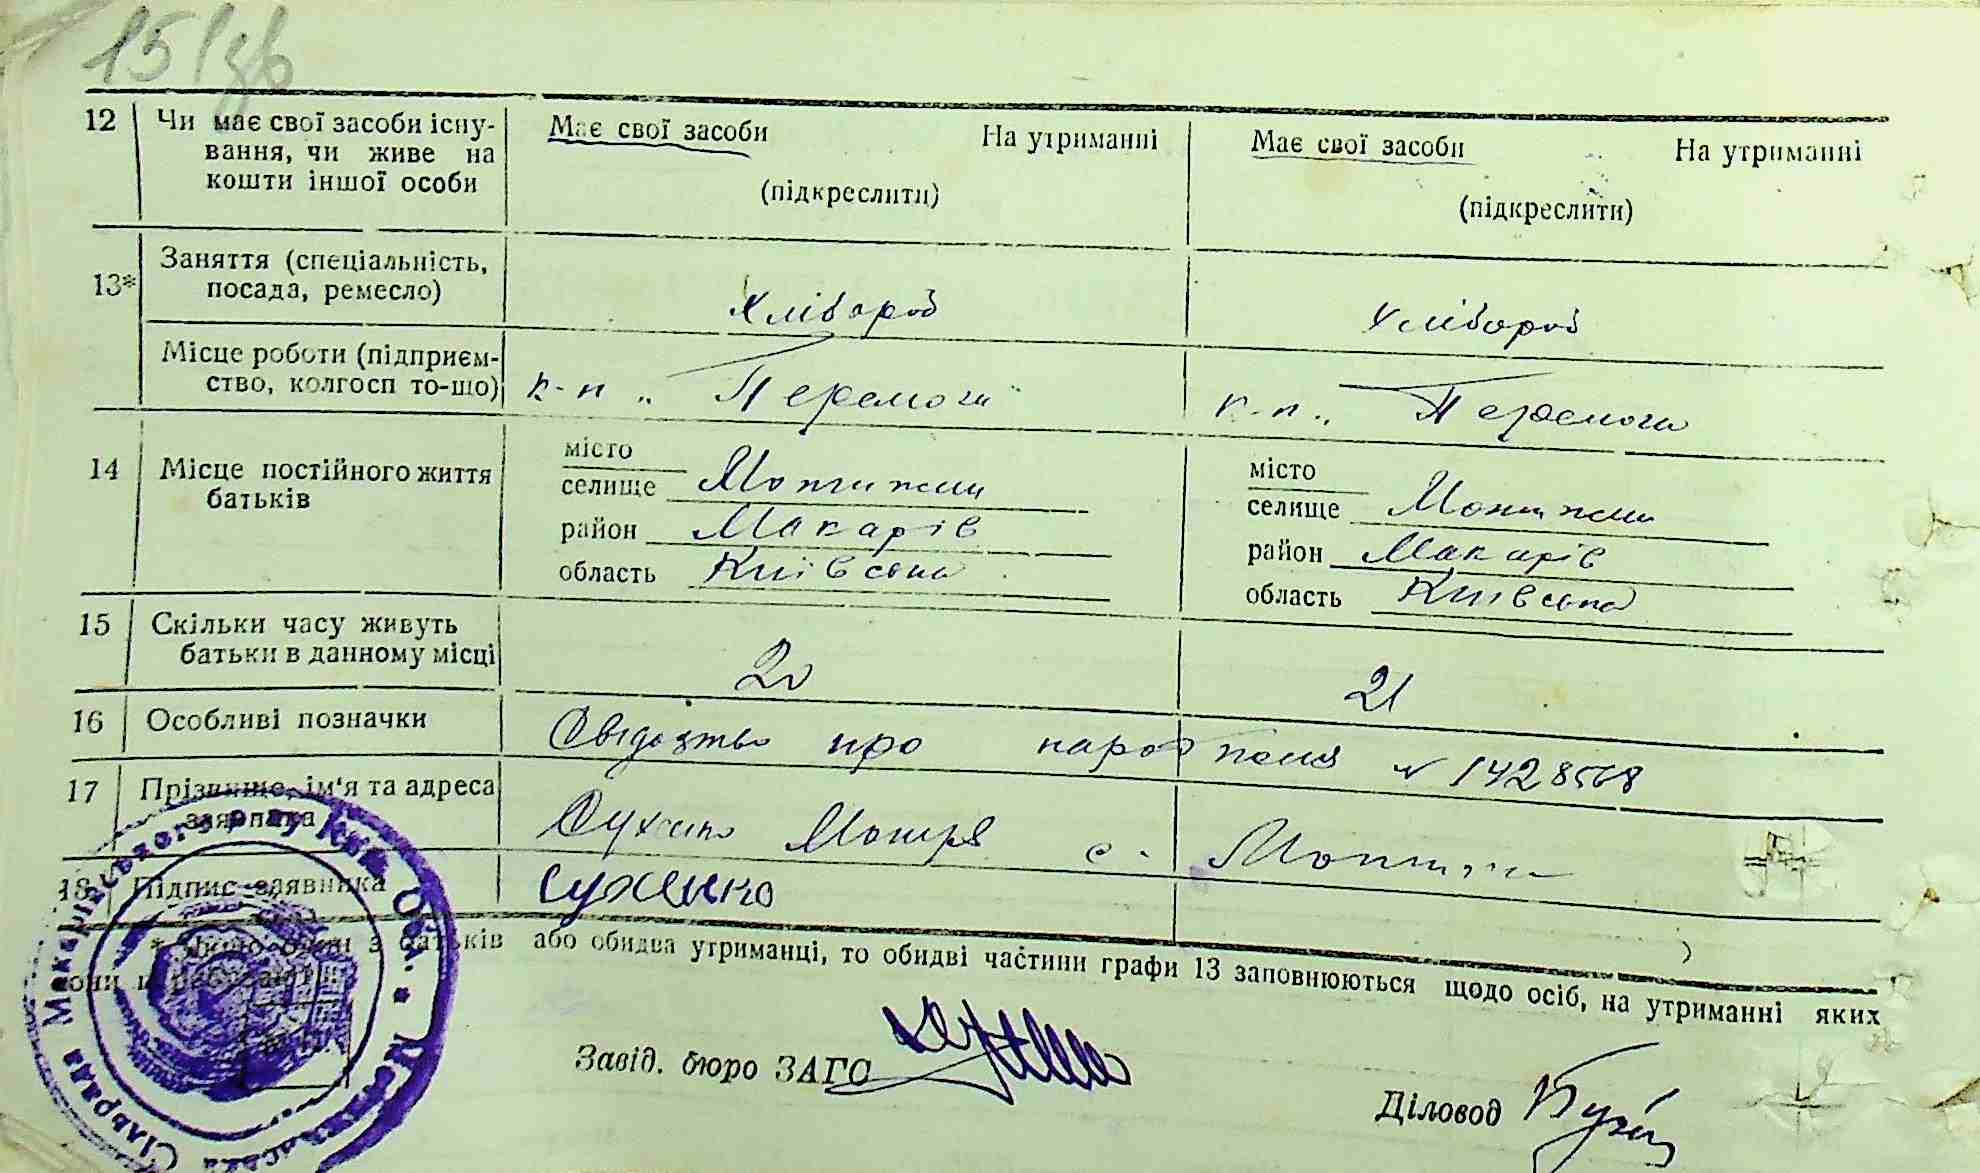 151зв
12 Чи має свої засоби існу-
вання, чи живе на
кошти іншої особи
Має свої засоби На утриманні
(підкреслити)
Має свої засоби На утриманні
(підкреслити)
13* Заняття (спеціальність,
посада, ремесло)
Хлібороб
Хлібороб
Місце роботи (підприєм-
ство, колгосп то-що)
к-п „Перемога"
к-п „Перемога
14 Місце постійного життя
батьків
місто
селище Мотижин
район Макарів
область Київська
місто
селище Мотижин
район Макарів
область Київська
15 Скільки часу живуть
батьки в данному місці
20
21
16 Особливі позначки
Свідоцтво про народження № 1428568
17 Прізвище, ім'я та адреса
заявника
Сухенко Мотря с. Мотижин
18 Підпис заявника
Сухенко
* Якщо один з батьків або обидва утриманці, то обидві частини графи 13 заповнюються щодо осіб, на утриманні яких
вони
Завід. бюро ЗАГС
Діловод
Сільрада Макарівського р-ну Київ. Обл.